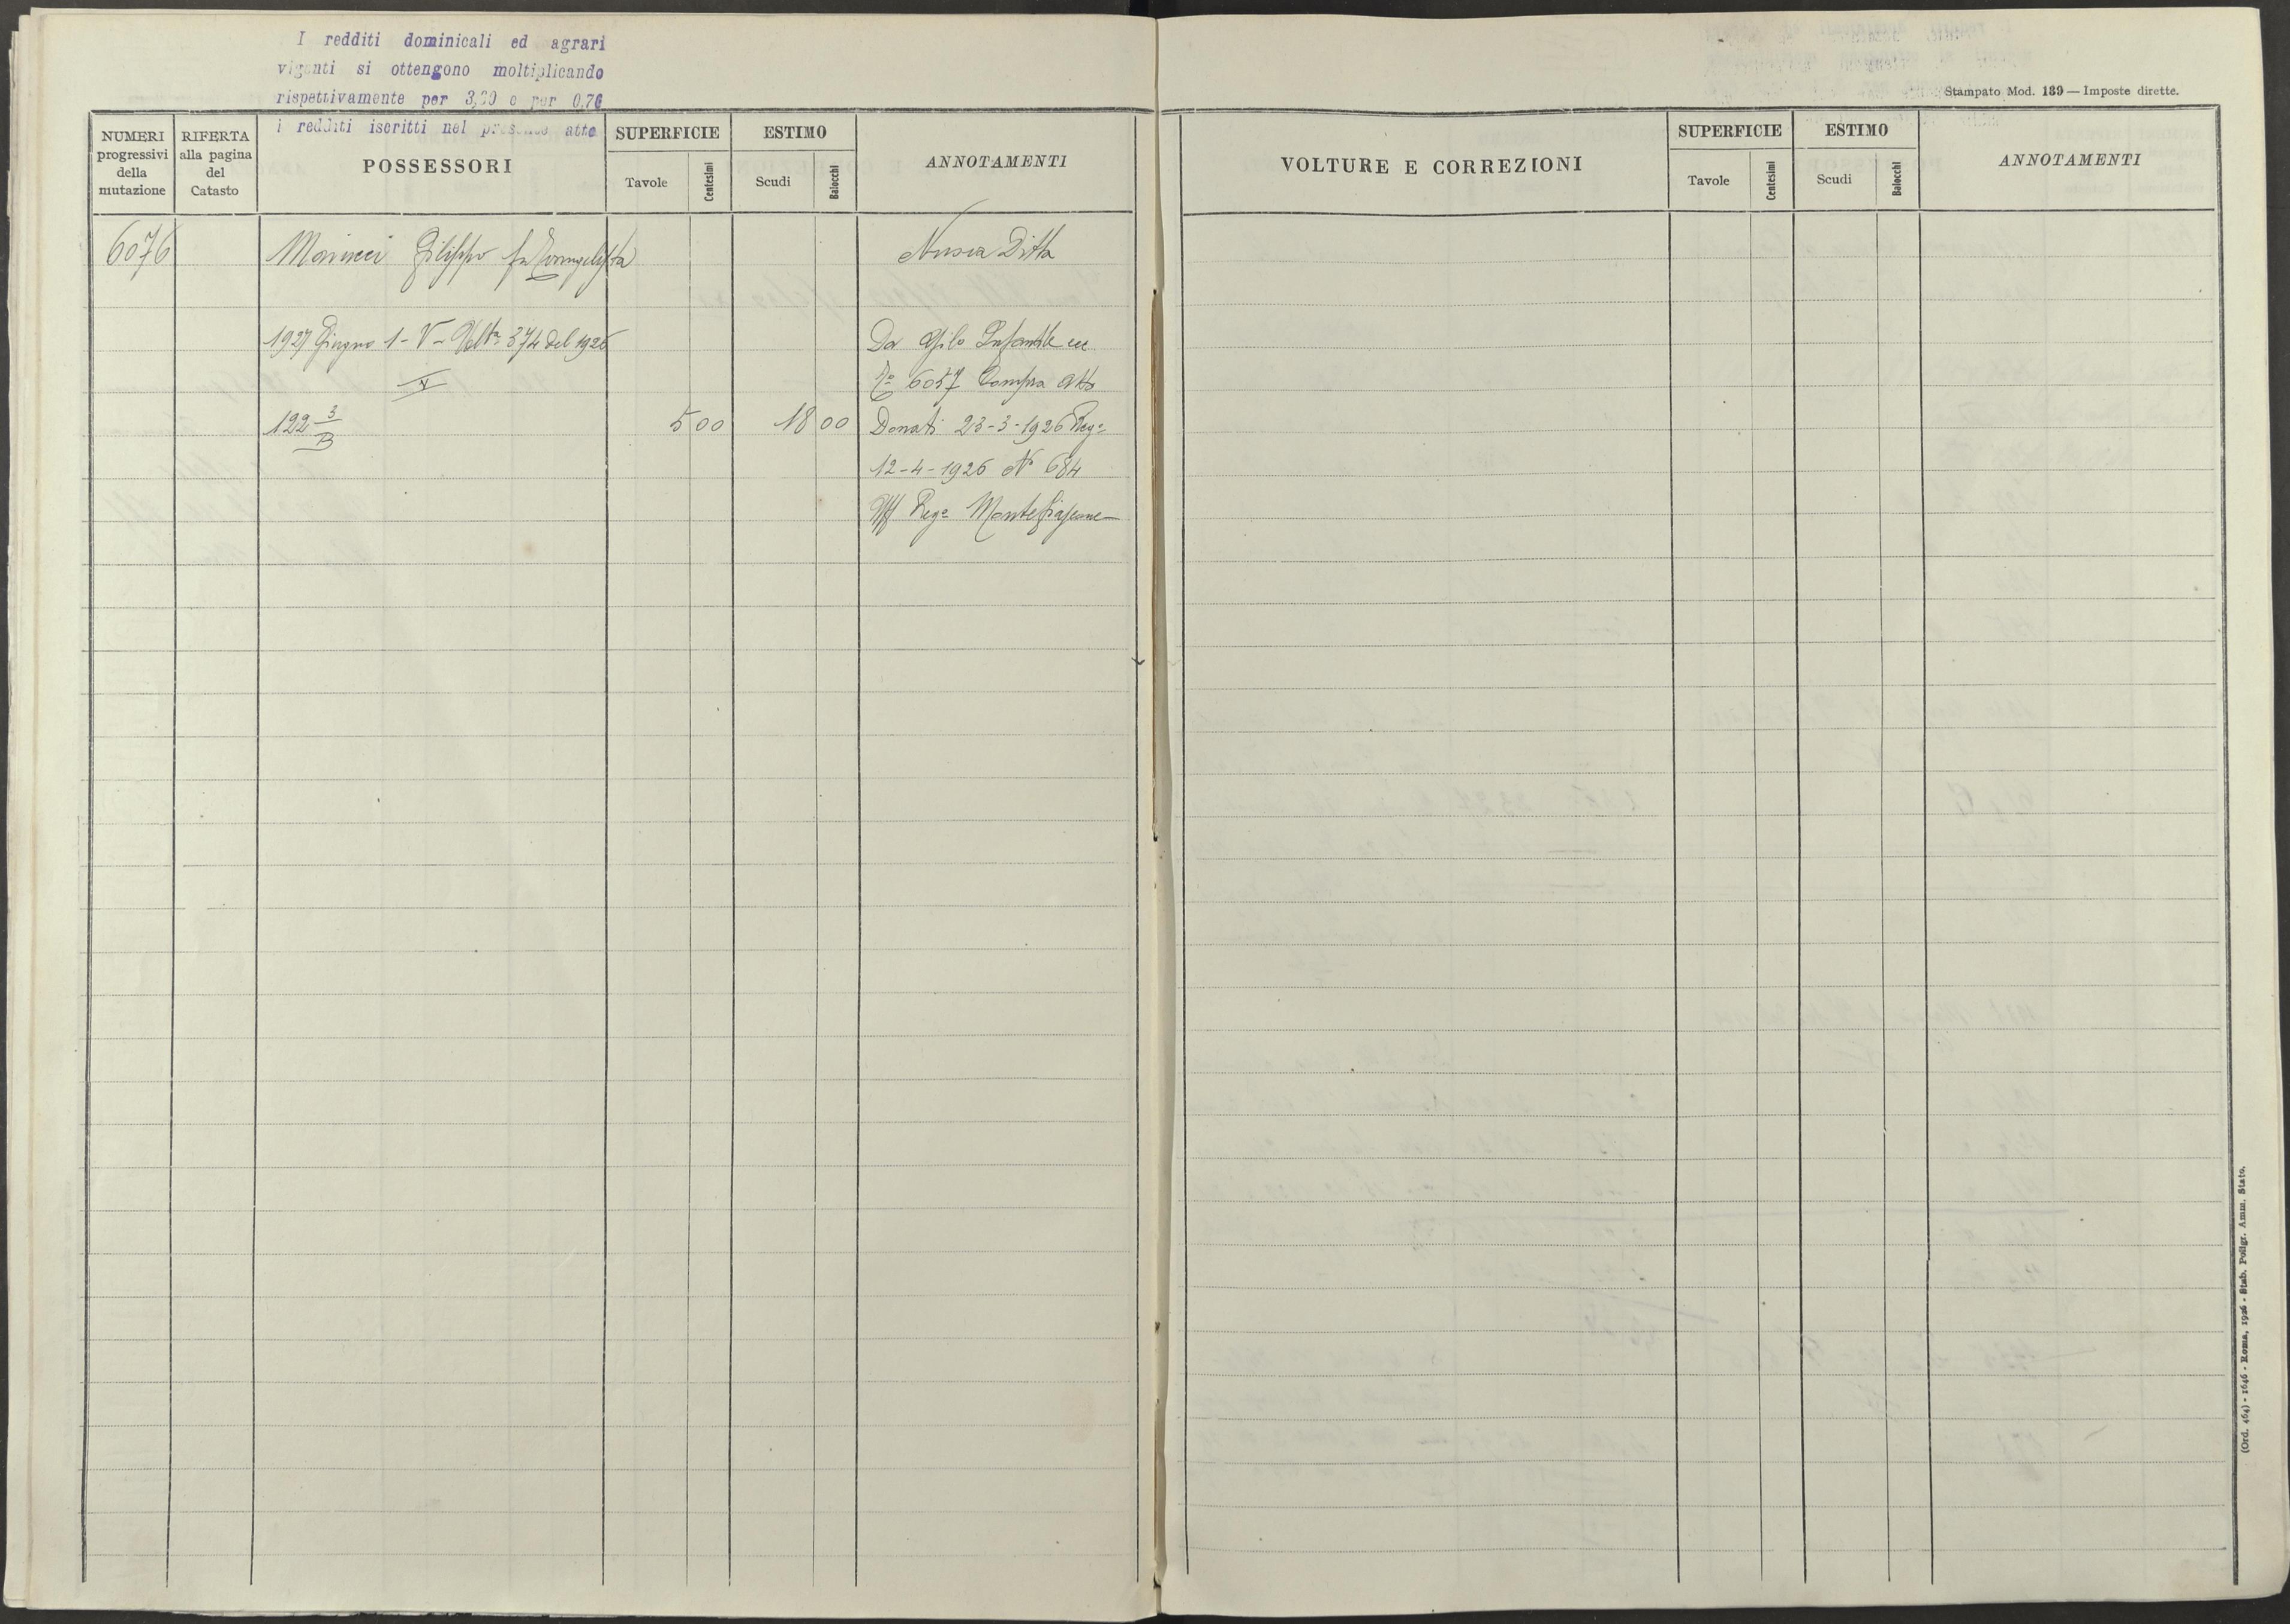 I redditi dominicali ed agrari
vigenti si ottengono moltiplicando
rispettivamente per 3,30 e per 0,76
i redditi iscritti nel presente atto
NUMERI progressivi della mutazione
RIFERTA alla pagina del Catasto
POSSESSORI
SUPERFICIE
Tavole
Centesimi
ESTIMO
Scudi
Baiocchi
ANNOTAMENTI
6076 Filippo fu Evangelista Nuova Ditta
1927 Giugno 1 - V - Volt.ra 374 del 1926 Da
V N° 6057 Compra atto
122 3/B 5 00 18 00 Donati 23-3-1926 Reg.°
12-4-1926 N° 684
Uff Reg.° Montefiascone
Stampato Mod. 139 — Imposte dirette.
VOLTURE E CORREZIONI
SUPERFICIE
Tavole
Centesimi
ESTIMO
Scudi
Baiocchi
ANNOTAMENTI
(Ord. 464) - 1646 - Roma, 1926 - Stab. Poligr. Amm. Stato.